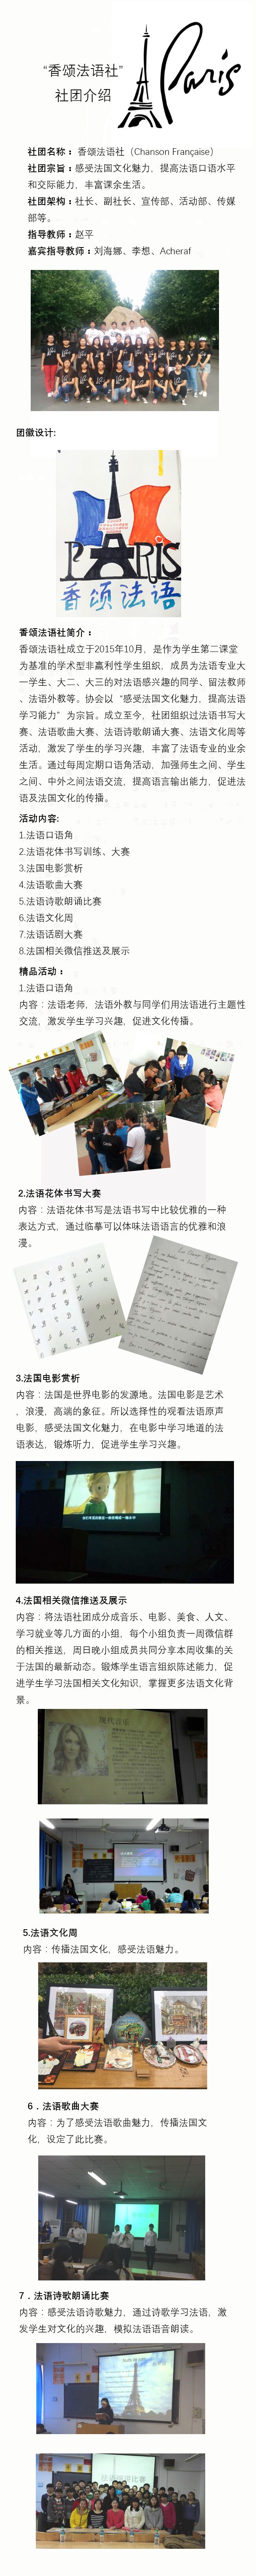 Paris
“香颂法语社”
社团介绍
社团名称：香颂法语社（Chanson Française）
社团宗旨：感受法国文化魅力，提高法语口语水平
和交际能力，丰富课余生活。
社团架构：社长、副社长、宣传部、活动部、传媒
部等。
指导教师：赵平
嘉宾指导教师：刘海娜、李想、Acheraf
团徽设计:
PARIS
香颂法语
香颂法语社简介：
香颂法语社成立于2015年10月，是作为学生第二课堂
为基准的学术型非赢利性学生组织，成员为法语专业大
一学生、大二、大三的对法语感兴趣的同学、留法教师
、法语外教等。协会以“感受法国文化魅力，提高法语
学习能力”为宗旨。成立至今，社团组织过法语书写大
赛、法语歌曲大赛、法语诗歌朗诵大赛、法语文化周等
活动，激发了学生的学习兴趣，丰富了法语专业的业余
生活。通过每周定期口语角活动，加强师生之间、学生
之间、中外之间法语交流，提高语言输出能力，促进法
语及法国文化的传播。
活动内容:
1.法语口语角
2.法语花体书写训练、大赛
3.法国电影赏析
4.法语歌曲大赛
5.法语诗歌朗诵比赛
6.法语文化周
7.法语话剧大赛
8.法国相关微信推送及展示
精品活动：
1.法语口语角
内容：法语老师，法语外教与同学们用法语进行主题性
交流，激发学生学习兴趣，促进文化传播。
2.法语花体书写大赛
内容：法语花体书写是法语书写中比较优雅的一种
表达方式，通过临摹可以体味法语语言的优雅和浪
漫。
3.法国电影赏析
内容：法国是世界电影的发源地。法国电影是艺术
，浪漫，高端的象征。所以选择性的观看法语原声
电影，感受法国文化魅力，在电影中学习地道的法
语表达，锻炼听力，促进学生学习兴趣。
4.法国相关微信推送及展示
内容：将法语社团成分成音乐、电影、美食、人文、
学习就业等几方面的小组，每个小组负责一周微信群
的相关推送，周日晚小组成员共同分享本周收集的关
于法国的最新动态。锻炼学生语言组织陈述能力，促
进学生学习法国相关文化知识，掌握更多法语文化背
景。
现代音乐
5.法语文化周
内容：传播法国文化，感受法语魅力。
6．法语歌曲大赛
内容：为了感受法语歌曲魅力，传播法国文
化，设定了此比赛。
7．法语诗歌朗诵比赛
内容：感受法语诗歌魅力，通过诗歌学习法语，激
发学生对文化的兴趣，模拟法语语音朗读。